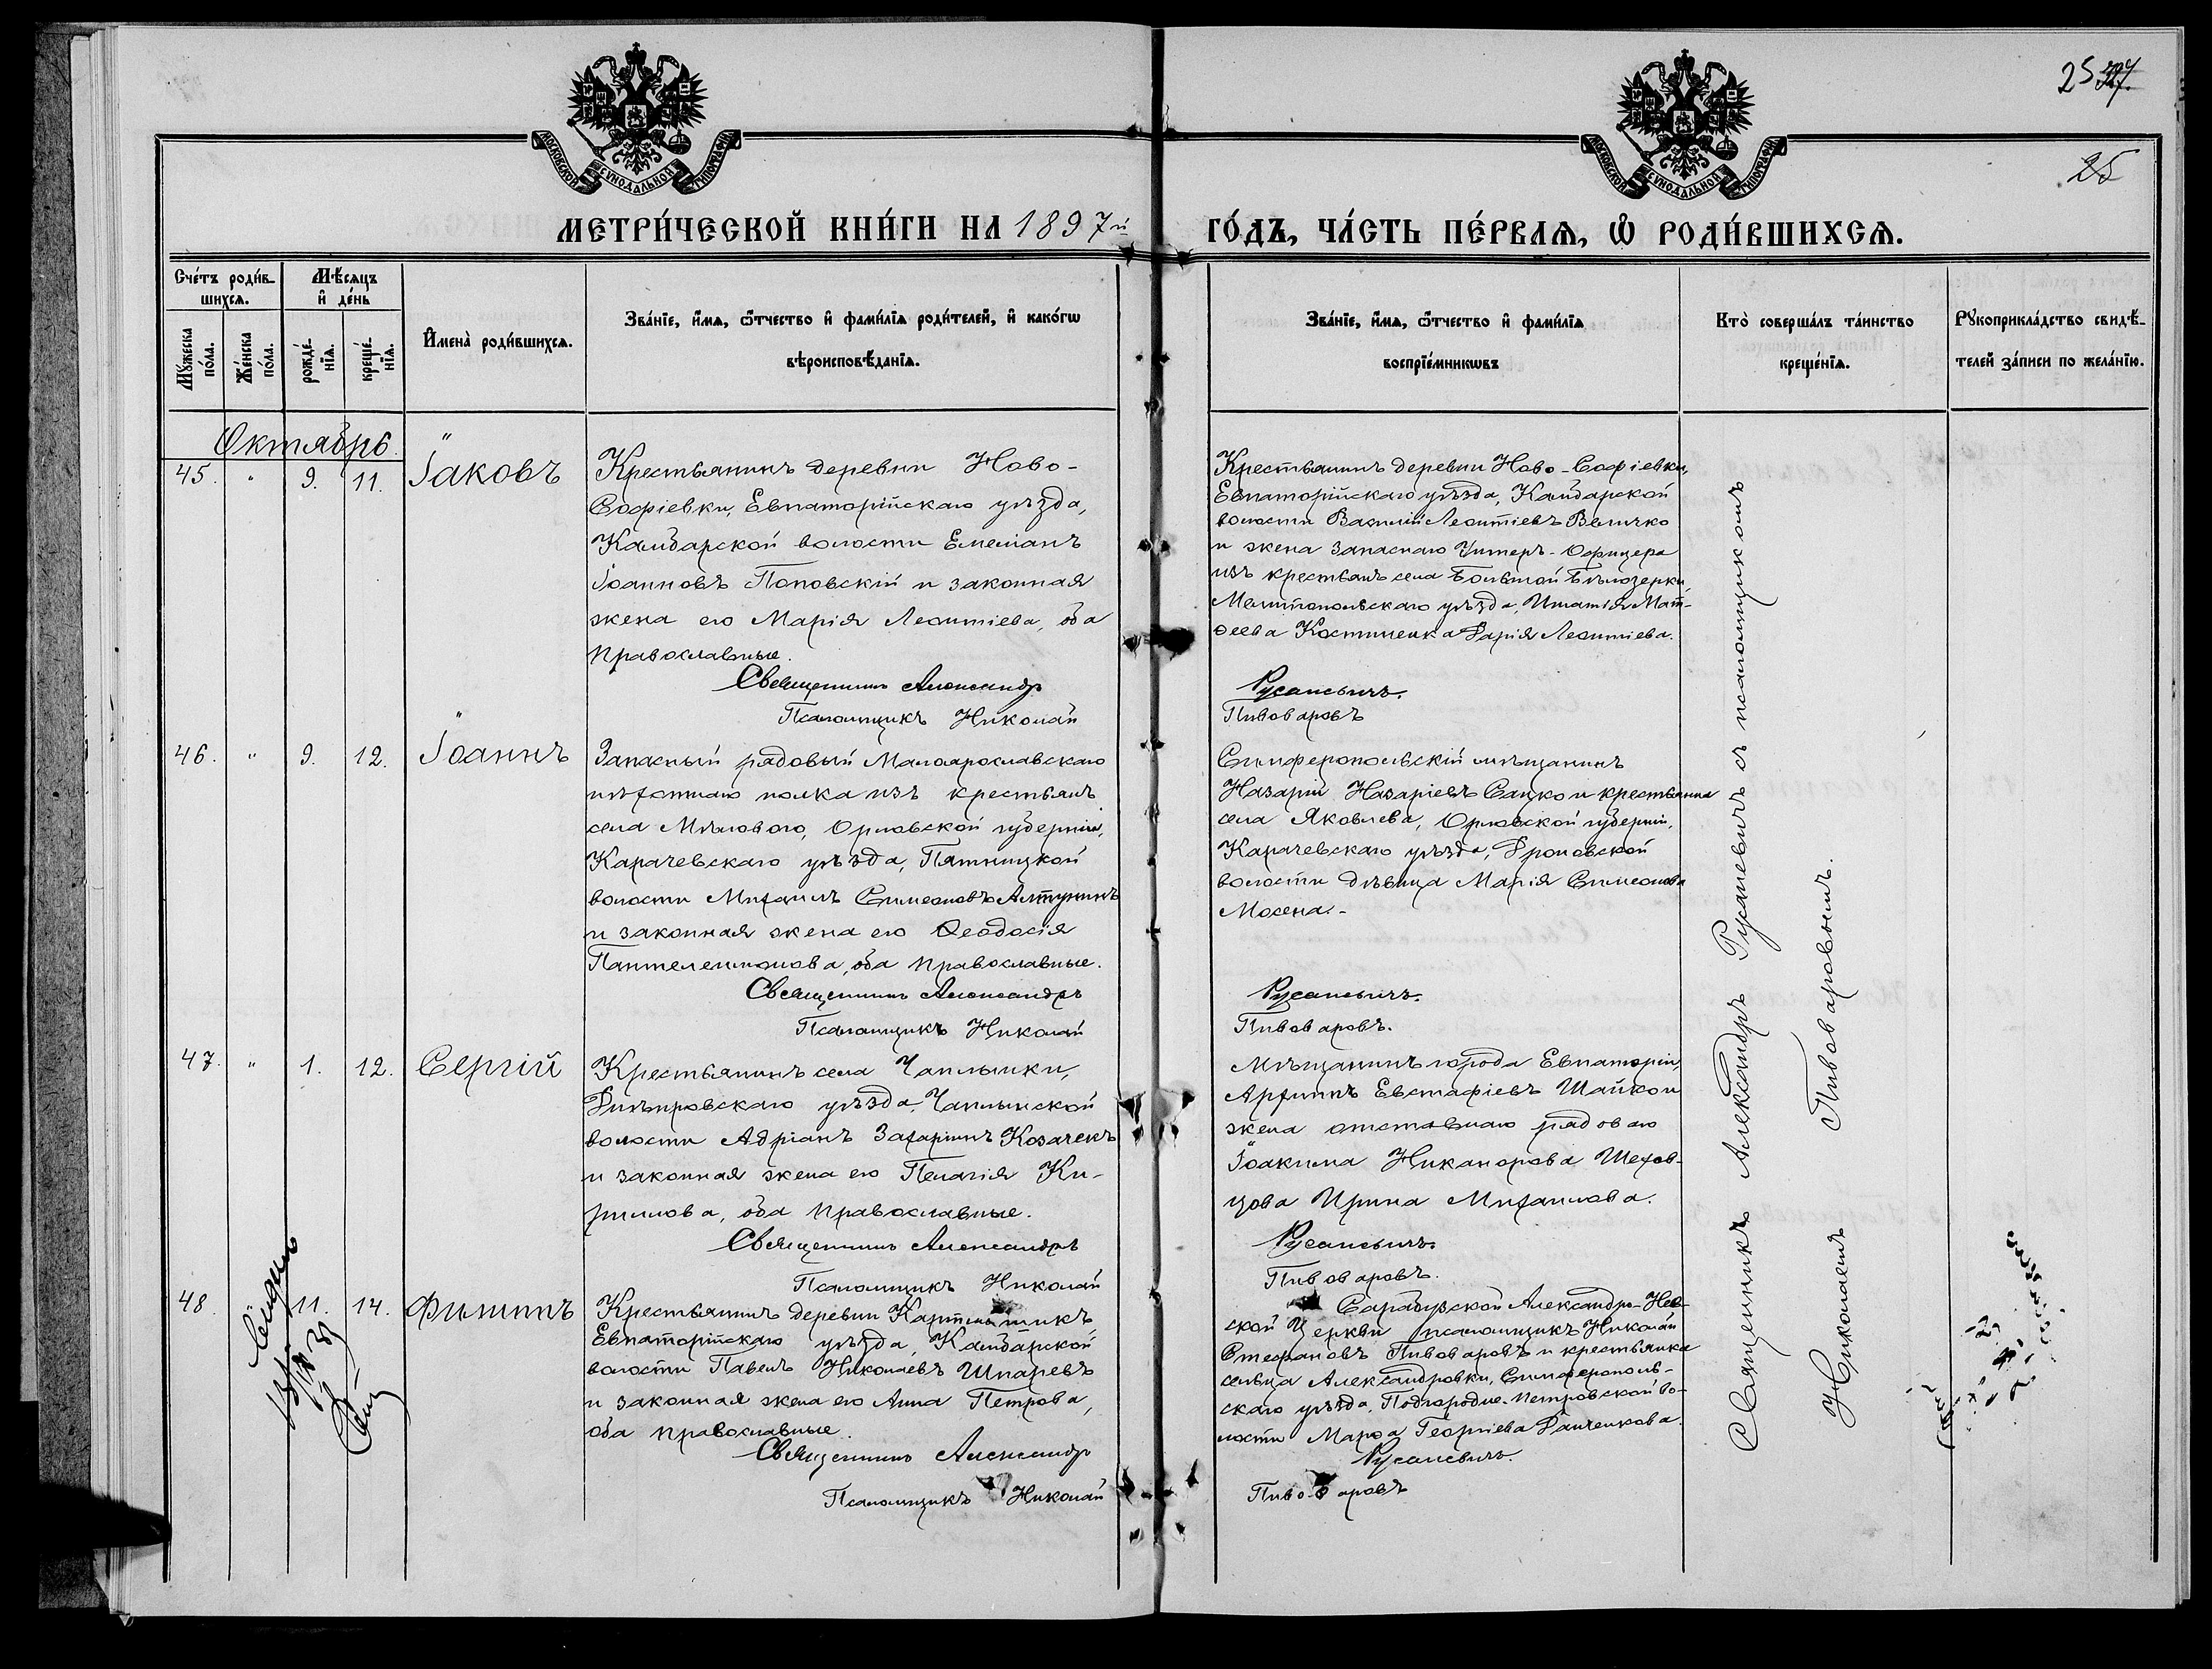 25
25
МОСКОВСКОЙ СѴНОДАЛЬНОЙ ТИПОГРАФІИ
МОСКОВСКОЙ СѴНОДАЛЬНОЙ ТИПОГРАФІИ
МЕТРИ́ЧЕСКОЙ КНИ́ГИ НА 1897й ГО́ДЪ, ЧА́СТЬ ПЕ́РВАѦ, Ѡ҆ РОДИ́ВШИХСѦ.
Сче́тъ роди́в-
шихсѧ.
Мѣ́сѧцъ
и҆ де́нь
Мꙋ́жеска
по́ла.
Же́нска
по́ла.
рожде́-
нїѧ.
креще́-
нїѧ.
И҆мена̀ роди́вшихсѧ.
Зва́нїе, и҆́мѧ, ѻ҆́тчество и҆ фами́лїѧ роди́телей, и҆ како́гѡ
вѣроисповѣ́данїѧ.
Зва́нїе, и҆́мѧ, ѻ҆́тчество и҆ фами́лїѧ
воспрїе́мникѡвъ
Кто̀ соверша́лъ та́инство
креще́нїѧ.
Рꙋкоприкла́дство свидѣ́-
телей за́писи по жела́нїю.
Октябрь.
45. " 9. 11. Іаковъ
Крестьянинъ деревни Ново-
Софіевки, Евпаторійскаго уѣзда,
Камбарской волости Емеліанъ
Іоанновъ Поповскій и законная
жена его Марія Леонтіева, оба
православные.
Священникъ Александр
Псаломщикъ Николай
Крестьянинъ деревни Ново-Софіевки,
Евпаторійскаго уѣзда, Камбарской
волости Василій Леонтіевъ Величко
и жена запаснаго Унтеръ-Офицера
изъ крестьянъ села Большой Бѣлозерки,
Мелитопольскаго уѣзда, Игнатія Мат-
ѳеева Костиненка Дарія Леонтіева.
Русаневичъ.
Пивоваровъ
46. " 9. 12. Іоаннъ
Запасный рядовый Малоярославскаго
пѣхотнаго полка изъ крестьянъ
села Мѣлового, Орловской губерніи,
Карачевскаго уѣзда, Пятницкой
волости Михаилъ Симеоновъ Алтунинъ
и законная жена его Ѳеодосія
Пантелеимонова, оба православные.
Священникъ Александръ
Псаломщикъ Николай
Симферопольскій мѣщанинъ
Назарій Назаріевъ Сацко и крестьянка
села Яковлева, Орловской губерніи,
Карачевскаго уѣзда, Дроновской
волости дѣвица Марія Симеонова
Мосена.-
Русаневичъ.
Пивоваровъ.
47. " 1. 12. Сергій
Крестьянинъ села Чаплынки,
Днѣпровскаго уѣзда, Чаплынской
волости Адріанъ Захаріинъ Козачекъ
и законная жена его Пелагія Ки-
риллова, оба православные.
Священникъ Александръ
Псаломщикъ Николай
Мѣщанинъ города Евпаторіи,
Архипъ Евстафіевъ Шайко и
жена отставнаго рядоваго
Іоакима Никанорова Шехов-
цова Ирина Михаилова.
Русаневичъ.
Пивоваровъ.
48. 11. 14. Филиппъ
Крестьянинъ деревни
Евпаторійскаго уѣзда, Камбарской
волости Павелъ Николаевъ Шпаревъ
и законная жена его Анна Петрова,
оба православные.
Священникъ Александр
Псаломщикъ Николай
Сарабузской Александро-Нев-
ской Церкви псаломщикъ Николай
Стефановъ Пивоваровъ и крестьянка
сельца Александровки, Симферополь-
скаго уѣзда, Подгородне-Петровской во-
лости Марѳа Георгіева Данченкова.
Русаневичъ.
Пивоваровъ
Священникъ Александръ Русаневичъ съ псаломщикомъ
Николаемъ Пивоваровымъ.